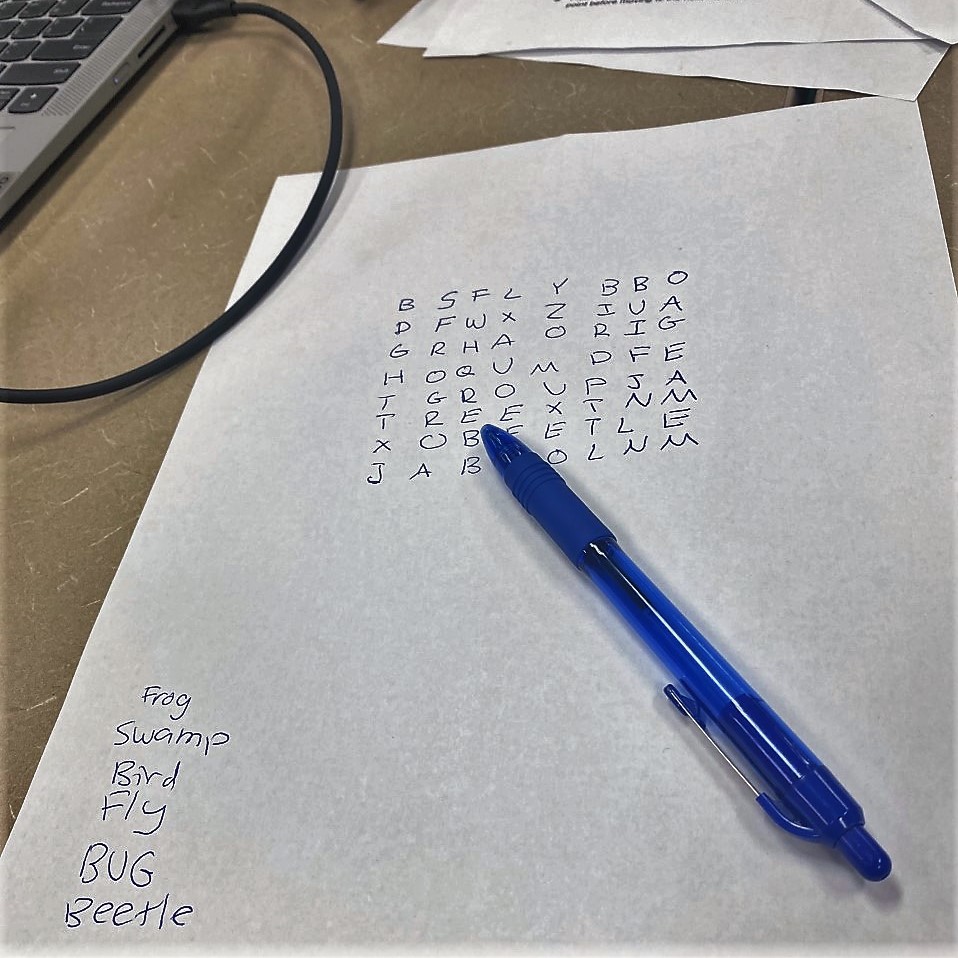 point before moving to the
Enter
Shift
B S F L Y B B O
D F W X Z I U A
G R H A O R I G
H O Q U M D F E
T G R O U P J A
T R E E X T N M
X O B E E T L E
J A B O L N M
Frog
Swamp
Bird
Fly
BUG
Beetle